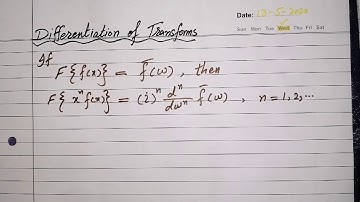 Date: 13-5-2020
Sun Mon Tue Wed Thu Fri Sat
Differentiation of Transforms
If
F{f(x)} = f̄(ω), then
F{xⁿf(x)} = (i)ⁿ dⁿ/dωⁿ f̄(ω), n=1,2,...